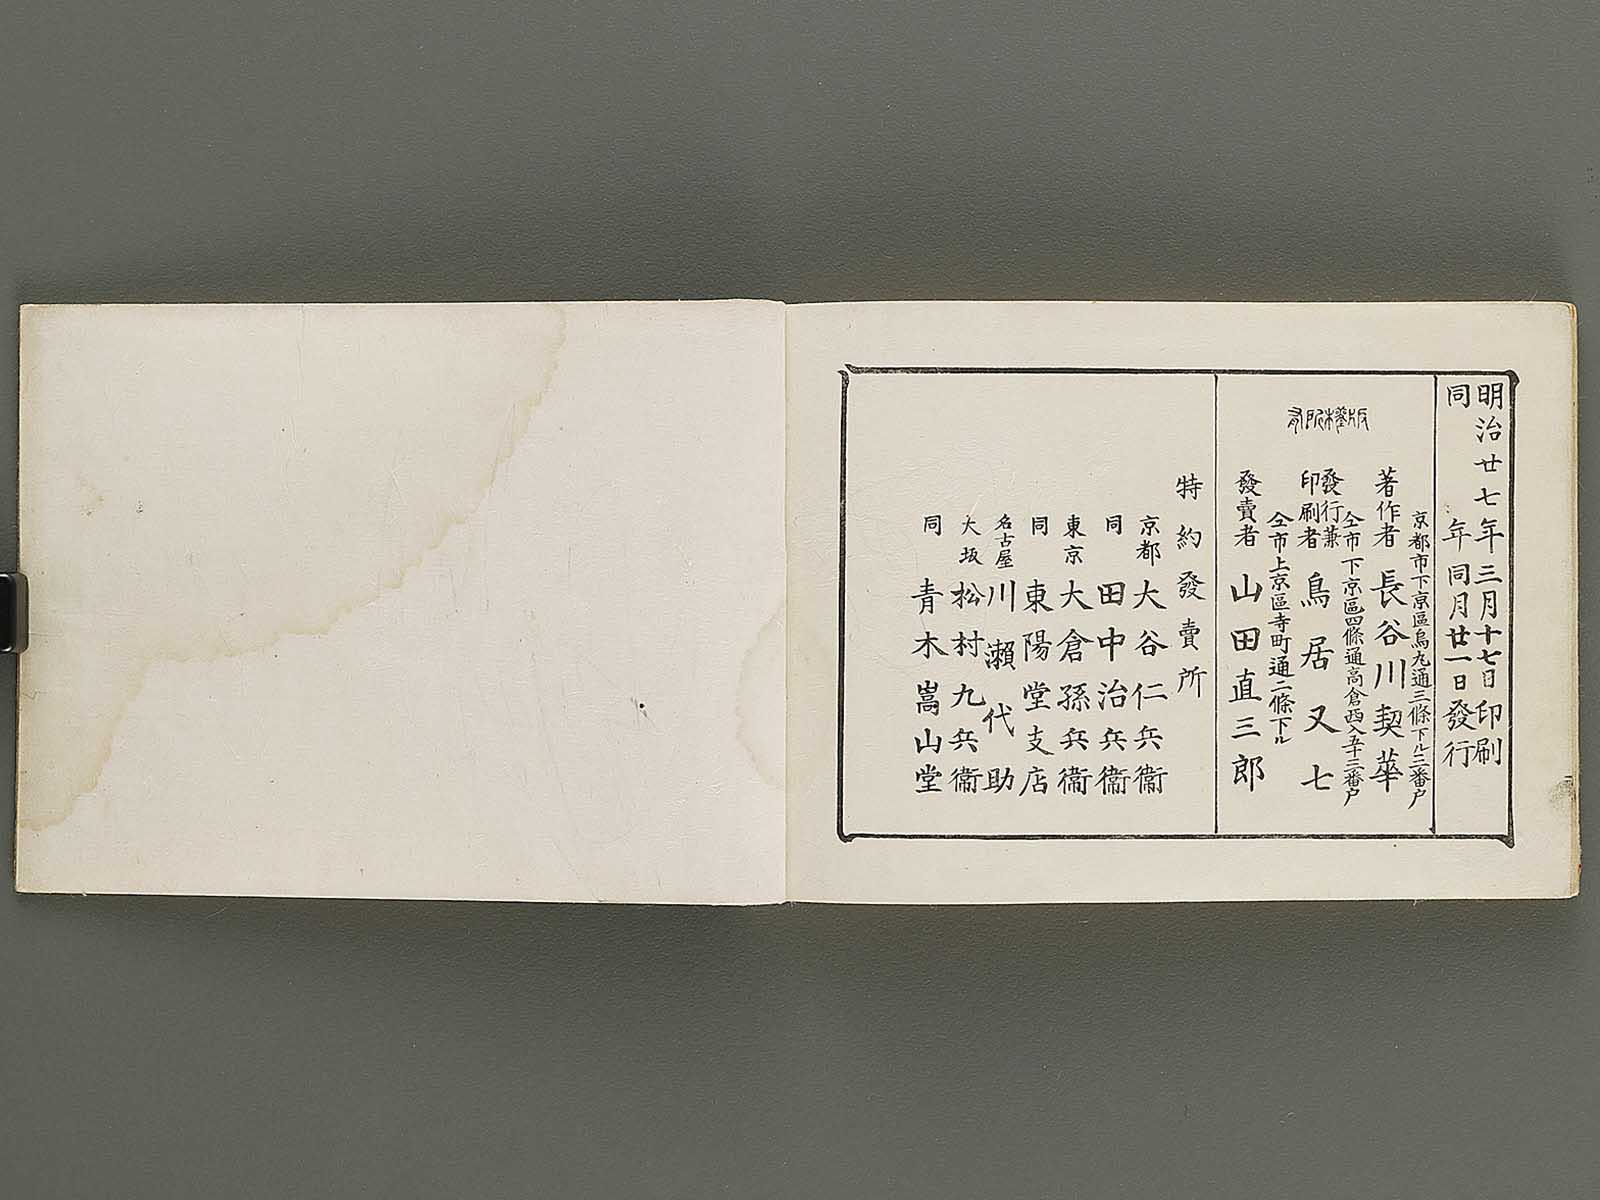 明治廿七年三月十七日印刷
同年同月廿一日發行
版權所有
京都市下京區烏丸通三條下ル三番戸
著作者 長谷川契華
仝市下京區四條通高倉西入五十三番戸
發行兼印刷者 鳥居又七
仝市上京區寺町通二條下ル
發賣者 山田直三郎
特約發賣所
京都 大谷仁兵衞
同 田中治兵衞
東京 大倉孫兵衞
同 東陽堂支店
名古屋 川瀬代助
大坂 松村九兵衞
同 青木嵩山堂